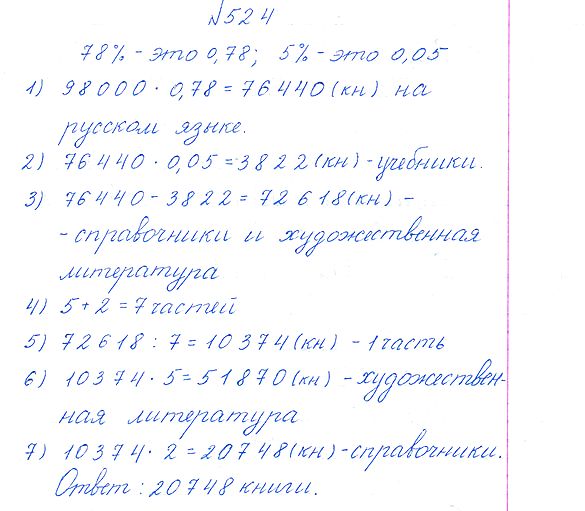 №524
78% - это 0,78; 5% - это 0,05
1) 98000 · 0,78 = 76440 (кн) на
русском языке.
2) 76440 · 0,05 = 3822 (кн) - учебники.
3) 76440 - 3822 = 72618 (кн) -
- справочники и художественная
литература
4) 5 + 2 = 7 частей
5) 72618 : 7 = 10374 (кн) - 1 часть
6) 10374 · 5 = 51870 (кн) - художествен-
ная литература
7) 10374 · 2 = 20748 (кн) - справочники.
Ответ: 20748 книги.